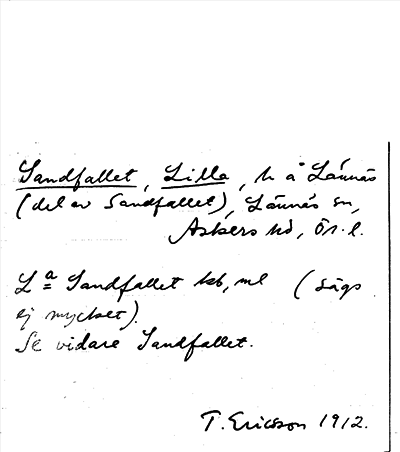 Sandfallet, Lilla, h å Lännäs
(del av Sandfallet), Lännäs sn,
Askers hd, Ör. l.
La Sandfallet kb, ml (sägs
ej mycket).
Se vidare Sandfallet.
T. Ericsson 1912.